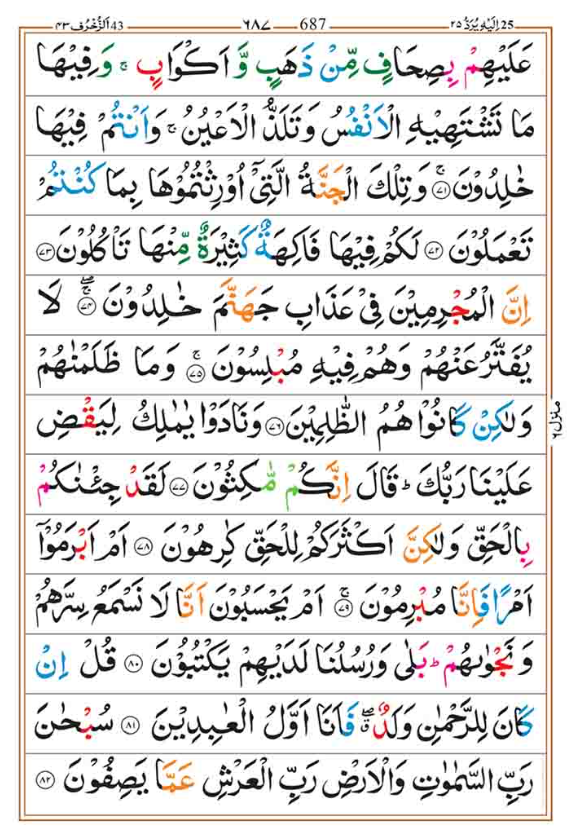 اِلَيْهِ يُرَدُّ ٢٥ 25 687 ٦٨٧ 43 اَلزُّخْرُف ٤٣
عَلَيْهِمْ بِصِحَافٍ مِّنْ ذَهَبٍ وَّ اَكْوَابٍ ۚ وَ فِيْهَا
مَا تَشْتَهِيْهِ الْاَنْفُسُ وَ تَلَذُّ الْاَعْيُنُ ۚ وَاَنْتُمْ فِيْهَا
خٰلِدُوْنَ ۚ ﴿٧١﴾ وَ تِلْكَ الْجَنَّةُ الَّتِيْۤ اُوْرِثْتُمُوْهَا بِمَا كُنْتُمْ
تَعْمَلُوْنَ ﴿٧٢﴾ لَكُمْ فِيْهَا فَاكِهَةٌ كَثِيْرَةٌ مِّنْهَا تَاْكُلُوْنَ ﴿٧٣﴾
اِنَّ الْمُجْرِمِيْنَ فِيْ عَذَابِ جَهَنَّمَ خٰلِدُوْنَ ۚۖ ﴿٧٤﴾ لَا
يُفَتَّرُ عَنْهُمْ وَهُمْ فِيْهِ مُبْلِسُوْنَ ۚ ﴿٧٥﴾ وَمَا ظَلَمْنٰهُمْ
وَلٰكِنْ كَانُوْا هُمُ الظّٰلِمِيْنَ ﴿٧٦﴾ وَنَادَوْا يٰمٰلِكُ لِيَقْضِ
عَلَيْنَا رَبُّكَ ؕ قَالَ اِنَّكُمْ مّٰكِثُوْنَ ﴿٧٧﴾ لَقَدْ جِئْنٰكُمْ
بِالْحَقِّ وَلٰكِنَّ اَكْثَرَكُمْ لِلْحَقِّ كٰرِهُوْنَ ﴿٧٨﴾ اَمْ اَبْرَمُوْۤا
اَمْرًا فَاِنَّا مُبْرِمُوْنَ ۚ ﴿٧٩﴾ اَمْ يَحْسَبُوْنَ اَنَّا لَا نَسْمَعُ سِرَّهُمْ
وَ نَجْوٰىهُمْ ؕ بَلٰى وَرُسُلُنَا لَدَيْهِمْ يَكْتُبُوْنَ ﴿٨٠﴾ قُلْ اِنْ
كَانَ لِلرَّحْمٰنِ وَلَدٌ ۖۗ فَاَنَا اَوَّلُ الْعٰبِدِيْنَ ﴿٨١﴾ سُبْحٰنَ
رَبِّ السَّمٰوٰتِ وَالْاَرْضِ رَبِّ الْعَرْشِ عَمَّا يَصِفُوْنَ ﴿٨٢﴾
منزل ٦